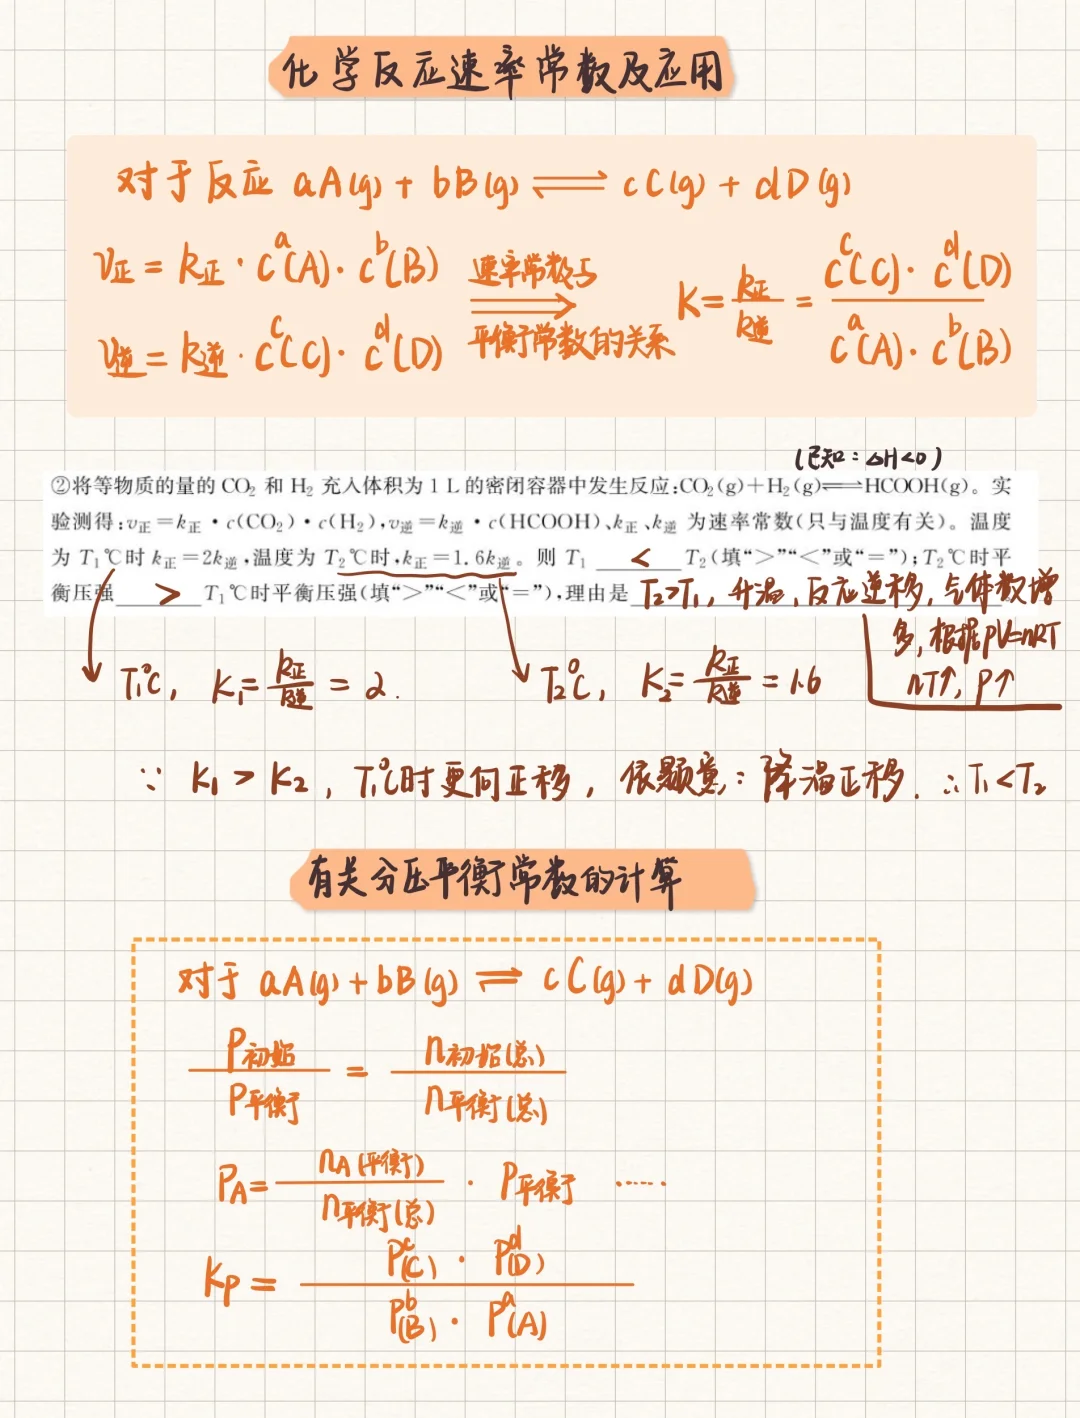 化学反应速率常数及应用
对于反应 aA(g) + bB(g) ⇌ cC(g) + dD(g)
v正 = k正 · cᵃ(A) · cᵇ(B)
v逆 = k逆 · cᶜ(C) · cᵈ(D)
速率常数与
平衡常数的关系
K = k正/k逆 = cᶜ(C) · cᵈ(D) / cᵃ(A) · cᵇ(B)
(已知：ΔH<0)
②将等物质的量的 CO₂ 和 H₂ 充入体积为 1 L 的密闭容器中发生反应:CO₂(g)+H₂(g)⇌HCOOH(g)。实
验测得:v正=k正·c(CO₂)·c(H₂),v逆=k逆·c(HCOOH)、k正、k逆 为速率常数(只与温度有关)。温度
为 T₁℃时 k正=2k逆,温度为 T₂℃时,k正=1.6k逆。则 T₁ < T₂(填“>”“<”或“=”);T₂℃时平
衡压强 > T₁℃时平衡压强(填“>”“<”或“=”),理由是 T₂>T₁，升温，反应逆移，气体数增
多，根据pV=nRT
nT↑，P↑
T₁℃，K₁= k正/k逆 = 2.
T₂℃，K₂= k正/k逆 = 1.6
∵ K₁ > K₂，T₁℃时更向正移，依题意：降温正移. ∴T₁<T₂
有关分压平衡常数的计算
对于 aA(g) + bB(g) ⇌ cC(g) + dD(g)
P初始/P平衡 = n初始(总)/n平衡(总)
PA = nA(平衡)/n平衡(总) · P平衡 ……
Kp = Pᶜ(C) · Pᵈ(D) / Pᵇ(B) · Pᵃ(A)